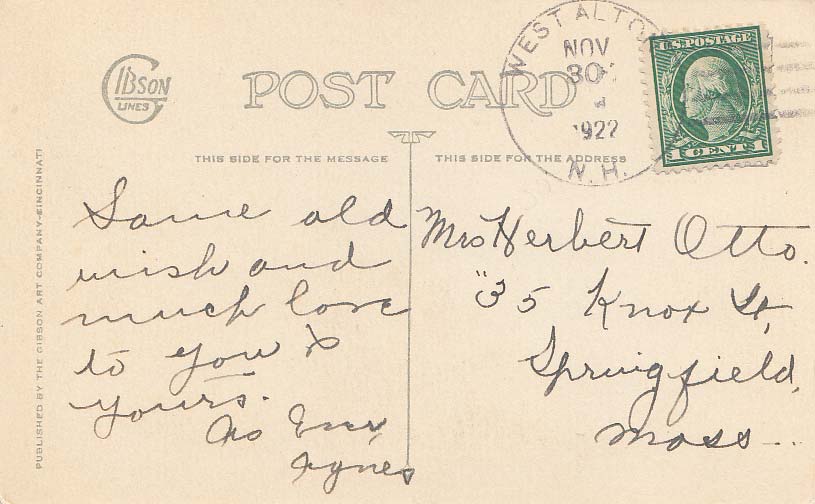 GIBSON
LINES
POST CARD
WEST ALTO
NOV
30
1922
N.H.
U.S. POSTAGE
1 CENT 1
THIS SIDE FOR THE MESSAGE
THIS SIDE FOR THE ADDRESS
PUBLISHED BY THE GIBSON ART COMPANY-CINCINNATI
Same old
wish and
much love
to you &
yours.
As Ever,
Agnes
Mrs Herbert Otto.
"35 Knox St,
Springfield,
Mass...